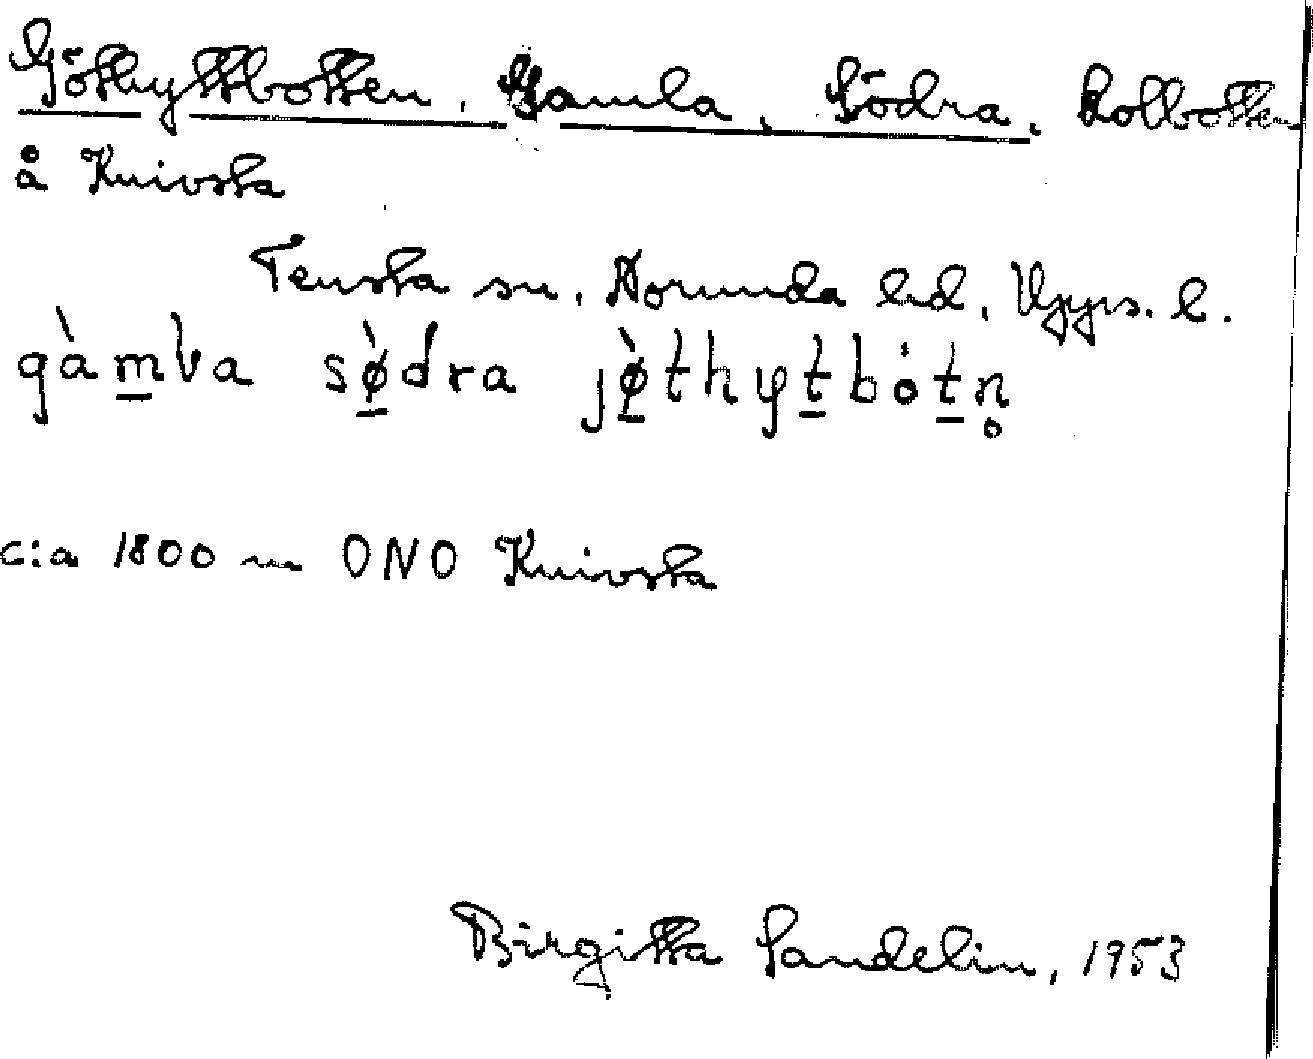 Göthyttbotten, Gamla, Södra, Kolbotten
å Knivsta
Tensta sn, Norunda hd, Upps. l.
gàm̲ɭa sø̲̀dra jø̲̀thyt̲bȯt̲n̥
c:a 1800 m ONO Knivsta
Birgitta Sandelin, 1953